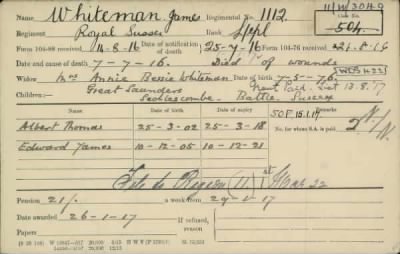 11/W/3044
Name Whiteman. James Regimental No. 1112.
504.
Regiment Royal Sussex
Form 104-88 received 14.8.16 Date of notification of death 25-7-16 Form 104-76 received 21.8.16
7-7-16 Died of wounds
Widow Mrs Annie Bessie Whiteman Date of Birth 7-5-76
Children: Great Saunders
Sedlescombe. Battle, Sussex
Date of birth Date of expiry
SOF. 15.1.17
No. for whom S.A. is paid 2
Albert Thomas 25-3-02 25-3-18
Edward James 10-12-05 10-12-21
File to Region (11) 1st Mar 22
Pension 21/- a week from 29-1-17
Date awarded 26-1-17 If refused, reason
Papers